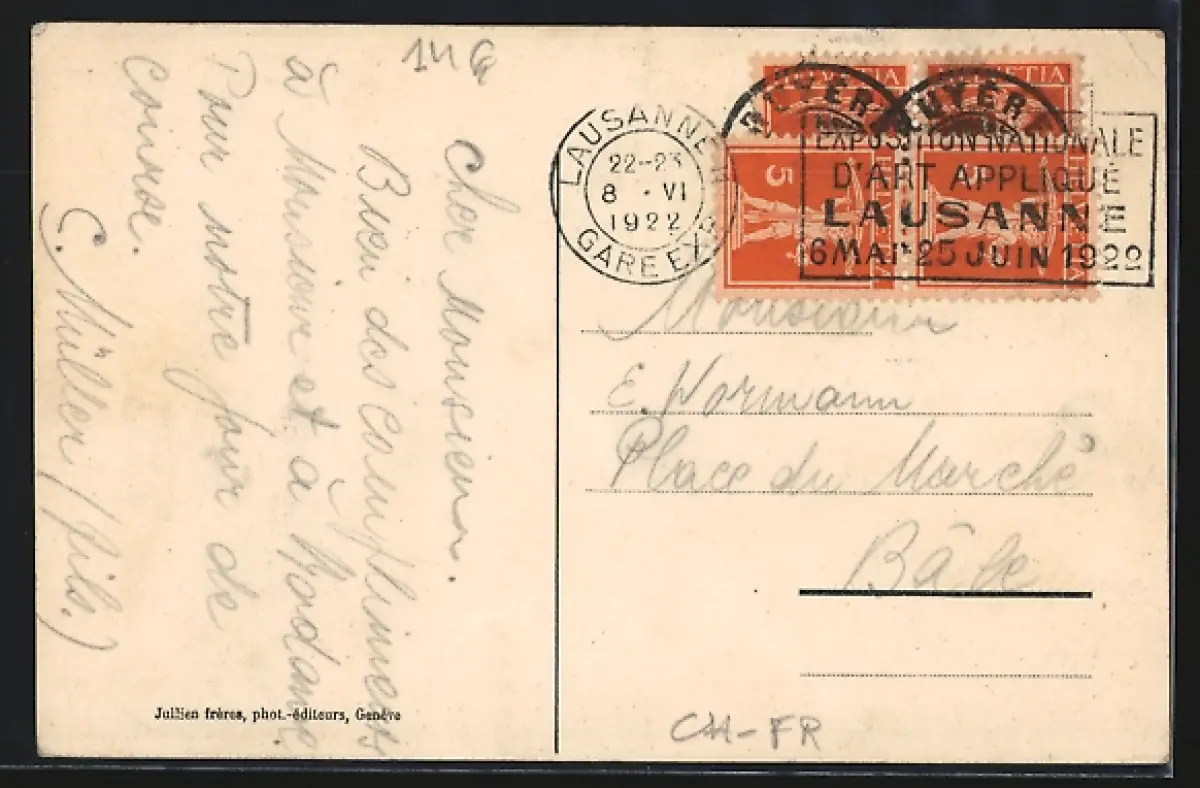 14 G
Cher Monsieur.
Bien des compliments
à Monsieur et à Madame
Pour notre jour de
course.
C. Müller (fils.)
Jullien frères, phot.-éditeurs, Genève
HELVETIA
HELVETIA
5
5
HELVETIA
HELVETIA
LAUSANNE
22-23
8 · VI
1922
GARE EXP
EXPOSITION NATIONALE
D'ART APPLIQUÉ
LAUSANNE
6 MAI-25 JUIN 1922
Monsieur
E. Wormann
Place du Marché
Bâle
CH-FR